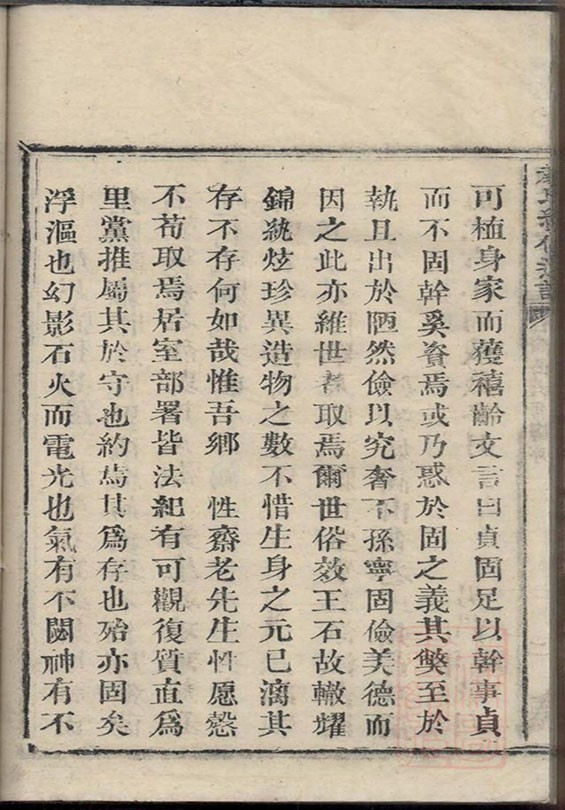 可植身家而獲禧齡文言曰貞固足以幹事貞
而不固幹奚資焉或乃惑於固之義其獘至於
執且出於陋然儉以究奢不孫寧固儉美德而
因之此亦維世者取焉爾世俗效王石故轍耀
錦紈炫珍異造物之數不惜生身之元已漓其
存不存何如哉惟吾鄉 性齋老先生性愿慤
不苟取焉居室部署皆法紀有可觀復質直為
里黨推屬其於守也約焉其為存也殆亦固矣
浮漚也幻影石火而電光也氣有不闕神有不